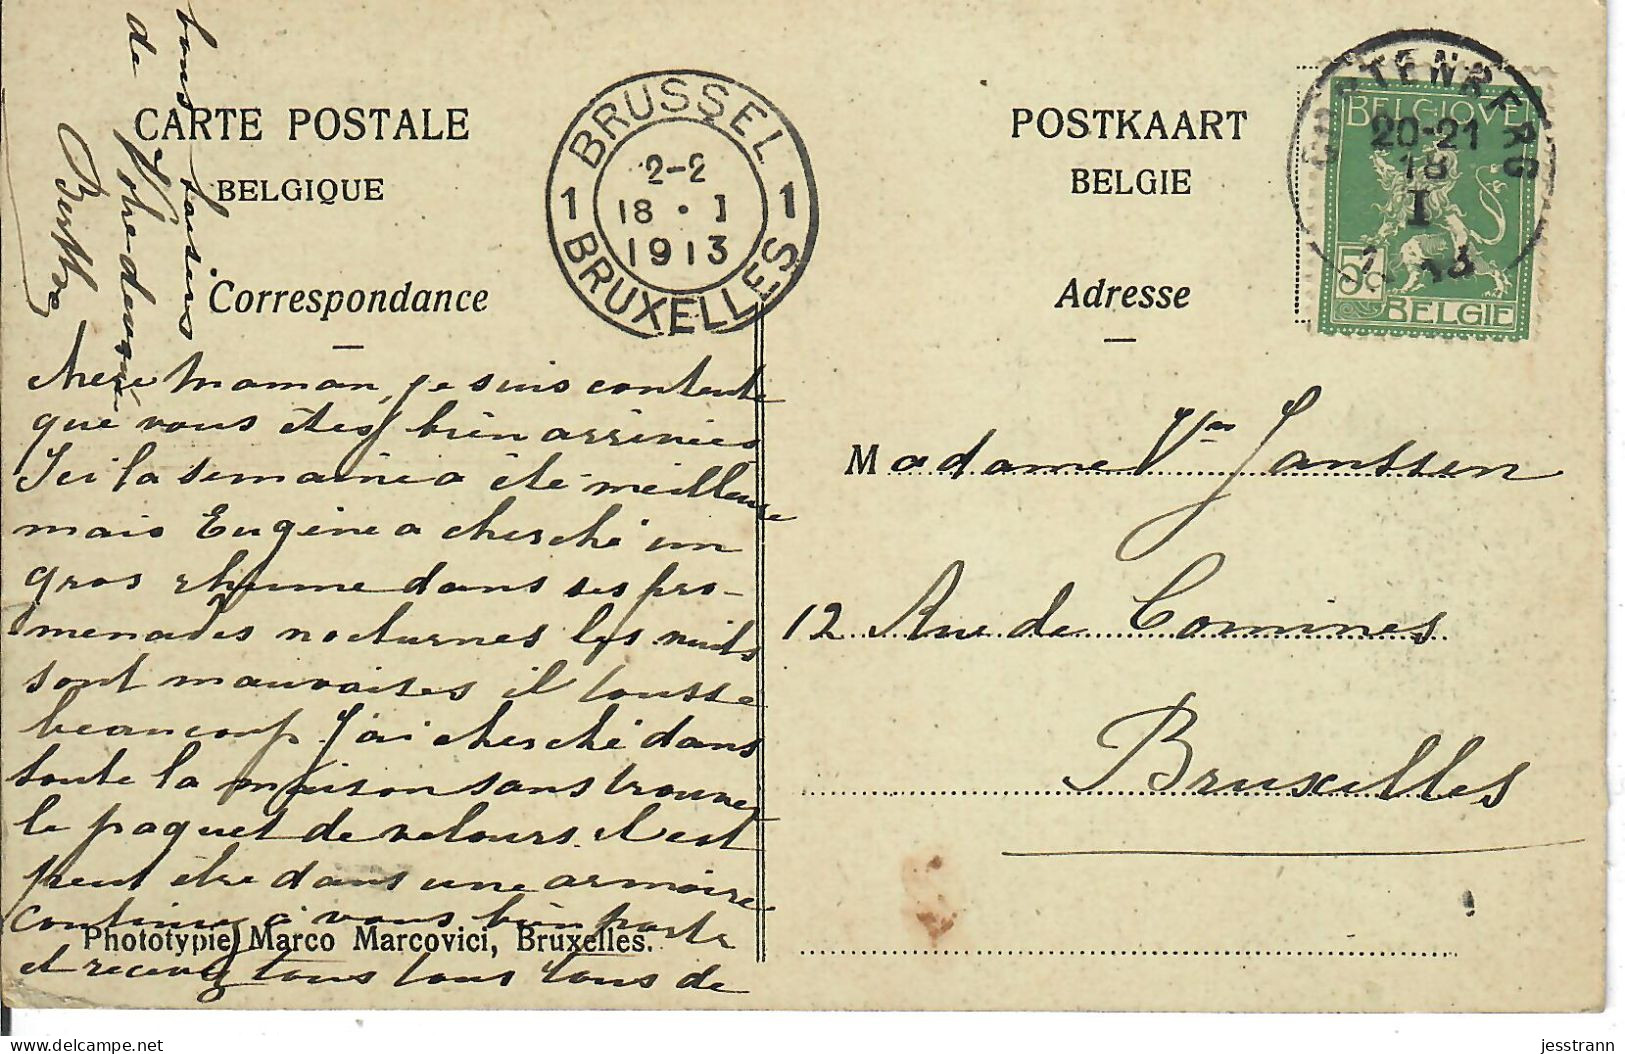 CARTE POSTALE
BELGIQUE
Correspondance
BRUSSEL
2-2
18 · I
1913
1 1
BRUXELLES
POSTKAART
BELGIE
Adresse
CORTENBERG
20-21
18
I
13
BELGIQUE
5
BELGIE
chère Maman, je suis contente
que vous êtes bien arrivées
Ici la semaine a été meilleure
mais Eugène a cherché un
gros rhume dans ses pro-
menades nocturnes les nuits
sont mauvaises il tousse
beaucoup J'ai cherché dans
toute la maison sans trouver
le paquet de velours. il est
peut être dans une armoire
continuez à vous bien porter
et recevez tous tous tous de
bons baisers
de
Votre dévouée
Berthe
Phototypie Marco Marcovici, Bruxelles.
Madame Vve Janssen
12 Rue de Comines
Bruxelles
jesstrann
delcampe.net